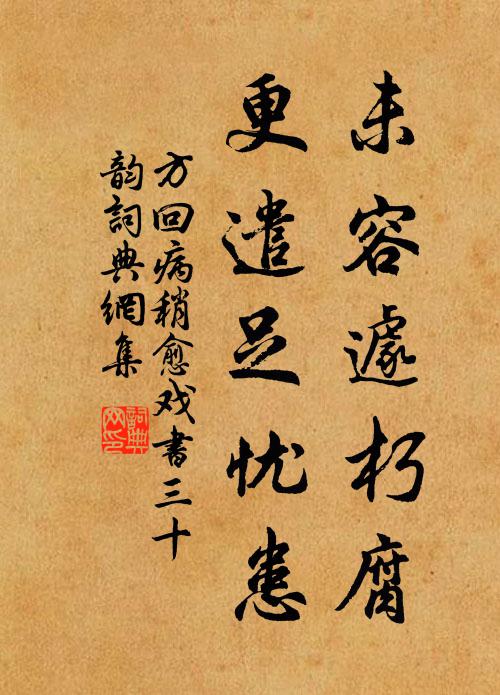 未容遽朽腐
更遣足忧患
方回病稍愈戏书三十
韵詞典網集
詞典
网印